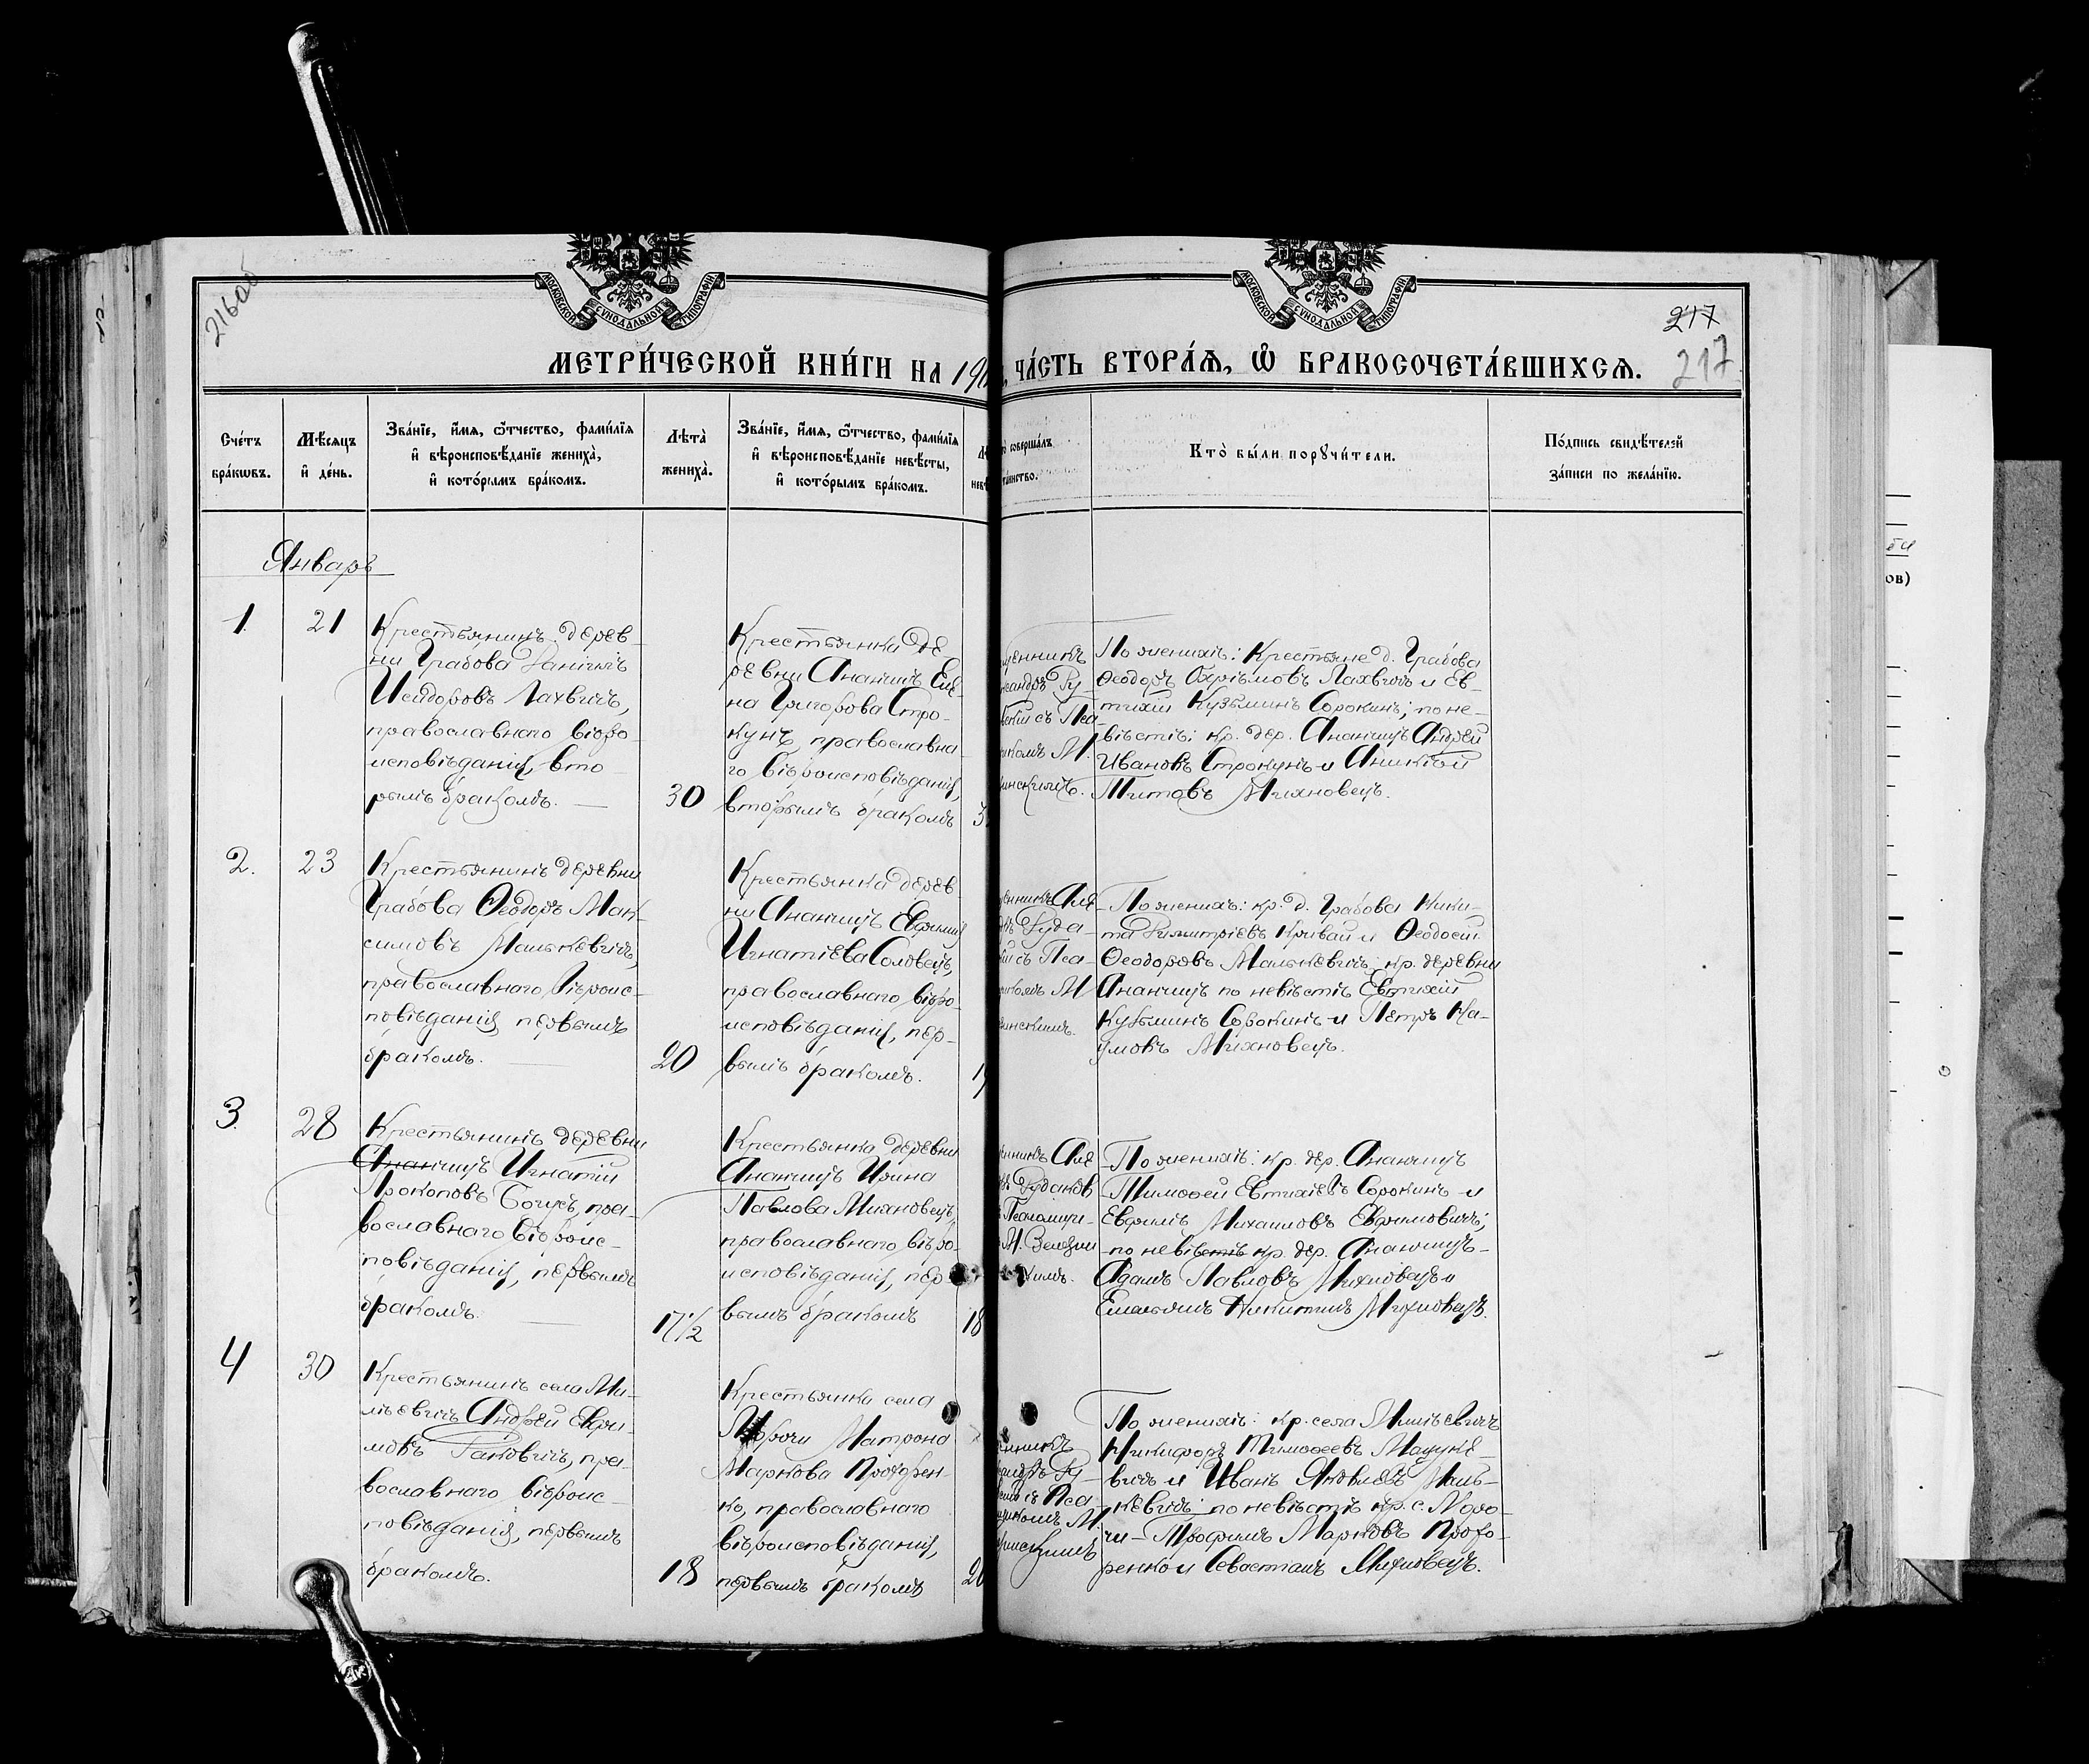 217
217
МОСКОВСКОЙ СУНОДАЛЬНОЙ ТИПОГРАФІИ
МОСКОВСКОЙ СУНОДАЛЬНОЙ ТИПОГРАФІИ
МЕТРИ́ЧЕСКОЙ КНИ́ГИ НА 19
ЧА́СТЬ ВТОРА́Я, Ѡ БРАКОСОЧЕТА́ВШИХСЯ.
Сче́тъ
бра́кѡвъ.
Мѣ́сяцъ
и҆ де́нь.
Зва́нїе, и҆́мя, ѻ҆́тчество, фами́лїя
и҆ вѣроисповѣ́данїе жениха̀,
и҆ кото́рымъ бра́комъ.
Лѣта̀
жениха̀.
Зва́нїе, и҆́мя, ѻ҆́тчество, фами́лїя
и҆ вѣроисповѣ́данїе невѣ́сты,
и҆ кото́рымъ бра́комъ.
соверша́лъ
Кто̀ бы́ли порꙋчи́тели.
По́дпись свидѣ́телей
за́писи по жела́нїю.
Январь
1.
21
Крестьянинъ дерев
ни Грабова Даніилъ
Исидоровъ Лахвичъ,
православнаго вѣро-
исповѣданія, вто
рымъ бракомъ.
30
Крестьянка де-
ревни Ананчицъ Еле-
на Григорова Стро-
кунъ, православна
го вѣроисповѣданія,
вторымъ бракомъ
По женихѣ: Крестьяне д. Грабова
Ѳеодоръ Лахвичъ и Ев-
тихій Кузьминъ Сорокинъ; по не-
вѣстѣ: кр. дер. Ананчицъ Андрей
Ивановъ Строкунъ и Аникій
Титовъ Михновецъ.
2.
23
Крестьянинъ деревни
Грабова Ѳеодоръ Мак-
симовъ Малькевичъ,
православнаго вѣроис-
повѣданія, первымъ
бракомъ.
20
Крестьянка дерев
ни Ананчицъ Евфимія
Игнатіева Соловей,
православнаго вѣро-
исповѣданія, пер-
вымъ бракомъ.
По женихѣ: кр. д. Грабова Ники-
та Димитріевъ Кривай и Ѳеодосій
Ѳеодоровъ Малькевичъ; кр. деревни
Ананчицъ по невѣстѣ Евтихій
Кузьминъ Сорокинъ и Петръ На-
умовъ Михновецъ.
3.
28
Крестьянинъ деревни
Ананчицъ Игнатій
Прокоповъ Богусъ, пра-
вославнаго вѣроис-
повѣданія, первымъ
бракомъ.
17 1/2
Крестьянка деревни
Ананчицъ Ирина
Павлова Михновецъ,
православнаго вѣро-
исповѣданія, пер
вымъ бракомъ
18
По женихѣ: кр. дер. Ананчицъ
Тимоѳей Евтихіевъ Сорокинъ и
Евфимъ Михаиловъ Евфимовичъ;
по невѣстѣ кр. дер. Ананчицъ
Адамъ Павловъ Михновецъ и
Емельянъ Никитинъ Михновецъ.
4
30
Крестьянинъ села Ми-
лѣевичъ Андрей Евфи-
мовъ Раковичъ, пра-
вославнаго вѣроис-
повѣданія, первымъ
бракомъ.
18
Крестьянка села
Морочи Матрона
Маркова Прохорен-
ко, православнаго
вѣроисповѣданія,
первымъ бракомъ
По женихѣ: кр. села Милѣевичъ
Никифоръ Тимоѳеевъ Мацуке-
вичъ и Иванъ Яковлевъ Маль-
кевичъ; по невѣстѣ кр. с. Моро-
чи Трофимъ Марковъ Прохо-
ренко и Севастіанъ Михновецъ.